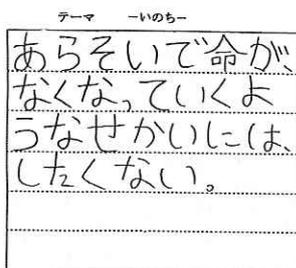 テーマ　－いのち－
あらそいで命が、
なくなっていくよ
うなせかいには、
したくない。